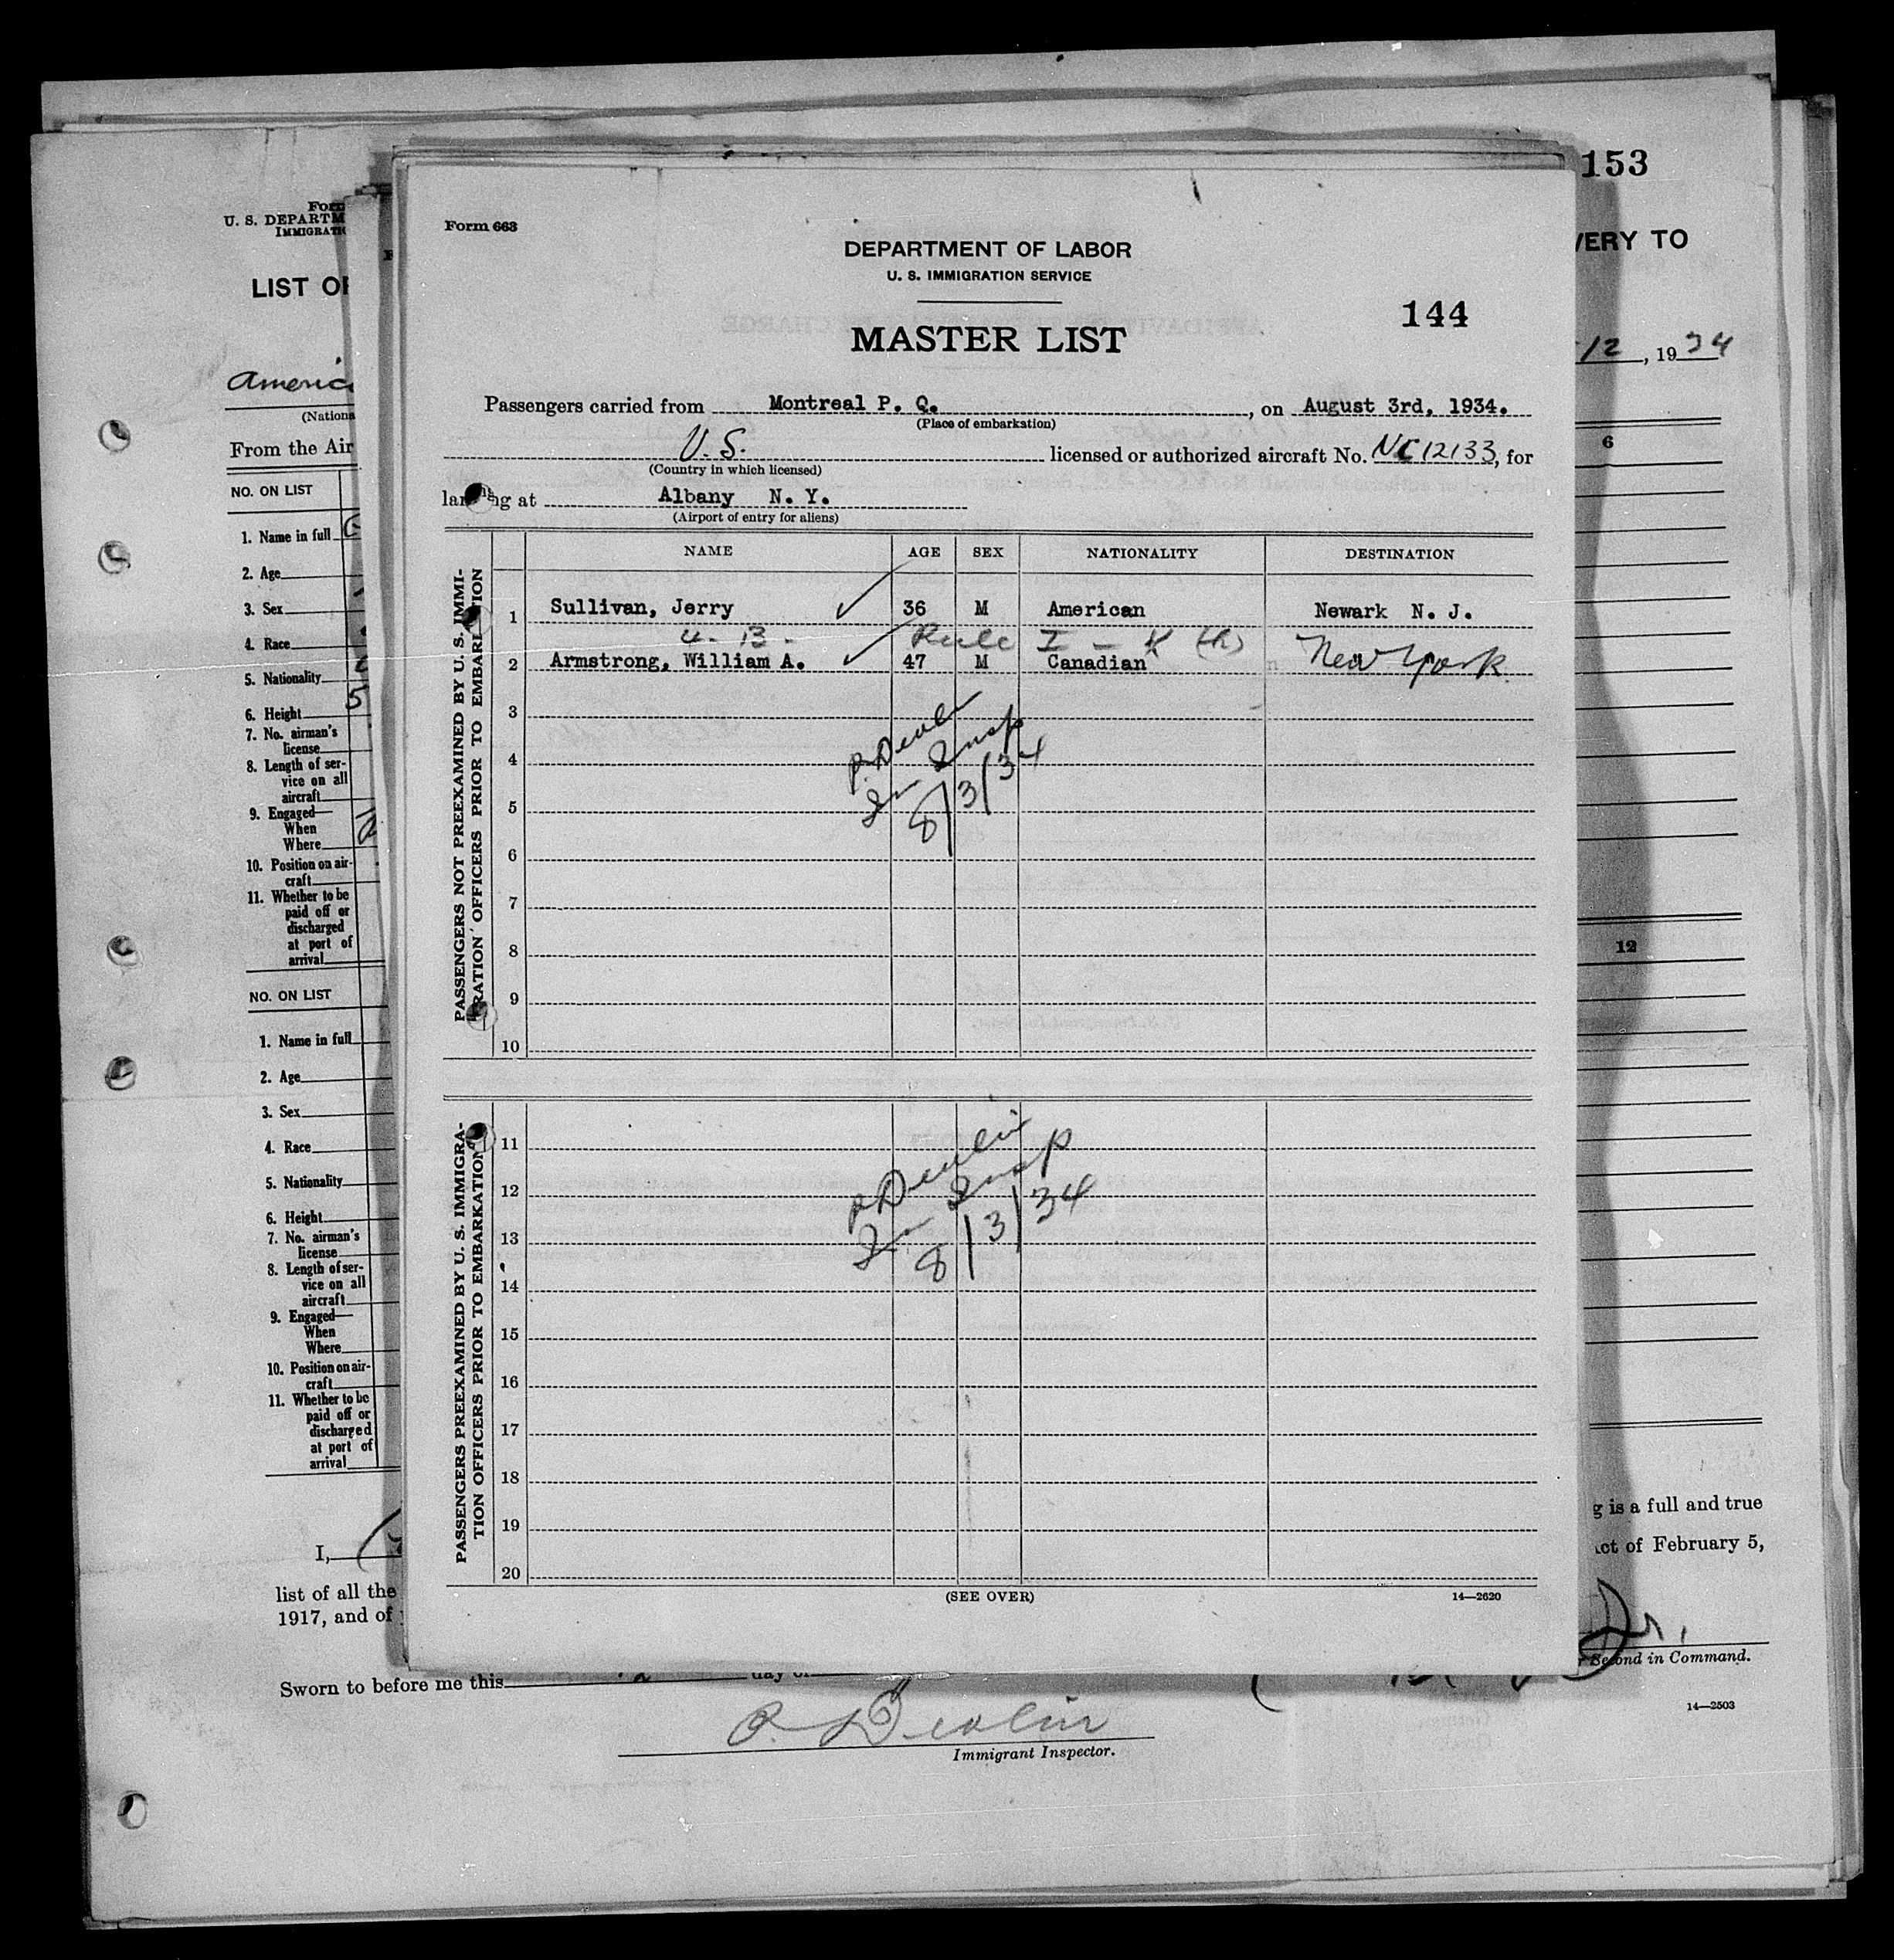 Form 663
DEPARTMENT OF LABOR
U. S. IMMIGRATION SERVICE
144
MASTER LIST
Passengers carried from Montreal P. Q. , on August 3rd, 1934.
(Place of embarkation)
U.S. licensed or authorized aircraft No. NC12133, for
(Country in which licensed)
landing at Albany N. Y.
(Airport of entry for aliens)
NAME AGE SEX NATIONALITY DESTINATION
PASSENGERS NOT PREEXAMINED BY U. S. IMMI-
GRATION OFFICERS PRIOR TO EMBARKATION
1 Sullivan, Jerry 36 M American Newark N. J.
U. B. Rule I - (h)
2 Armstrong, William A. 47 M Canadian New York
3
4
5
6
7
8
9
10
P. Devlin
Im Insp
8/3/34
PASSENGERS PREEXAMINED BY U. S. IMMIGRA-
TION OFFICERS PRIOR TO EMBARKATION
11
12
13
14
15
16
17
18
19
20
P Devlin
Im Insp
8/3/34
(SEE OVER) 14—2620
Form
U. S. DEPARTM
IMMIGRATI
LIST OF
America
(Nationa
From the Air
NO. ON LIST
1. Name in full
2. Age
3. Sex
4. Race
5. Nationality
6. Height 5
7. No. airman's
license
8. Length of ser-
vice on all
aircraft
9. Engaged—
When
Where
10. Position on air-
craft
11. Whether to be
paid off or
discharged
at port of
arrival
NO. ON LIST
1. Name in full
2. Age
3. Sex
4. Race
5. Nationality
6. Height
7. No. airman's
license
8. Length of ser-
vice on all
aircraft
9. Engaged—
When
Where
10. Position on air-
craft
11. Whether to be
paid off or
discharged
at port of
arrival
I,
list of all the
1917, and of
Sworn to before me this 12 day of
P. Devlin
Immigrant Inspector.
153
VERY TO
12, 1934
6
12
g is a full and true
Act of February 5,
Jr.
r Second in Command.
14—2503